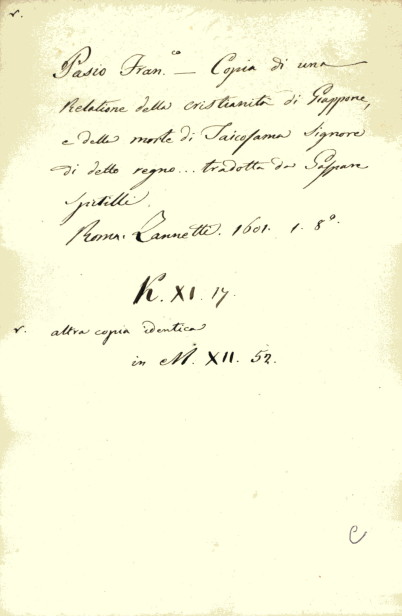 v.
Pasio Fran.co — Copia di una
Relatione della cristianità di Giappone,
e della morte di Taicosama Signore
di detto regno... tradotta da Gaspare
Spitilli.
Roma. Zannetti. 1601. 1. 8°.
K. XI. 17.
v. altra copia identica
in M. XII. 52.
C